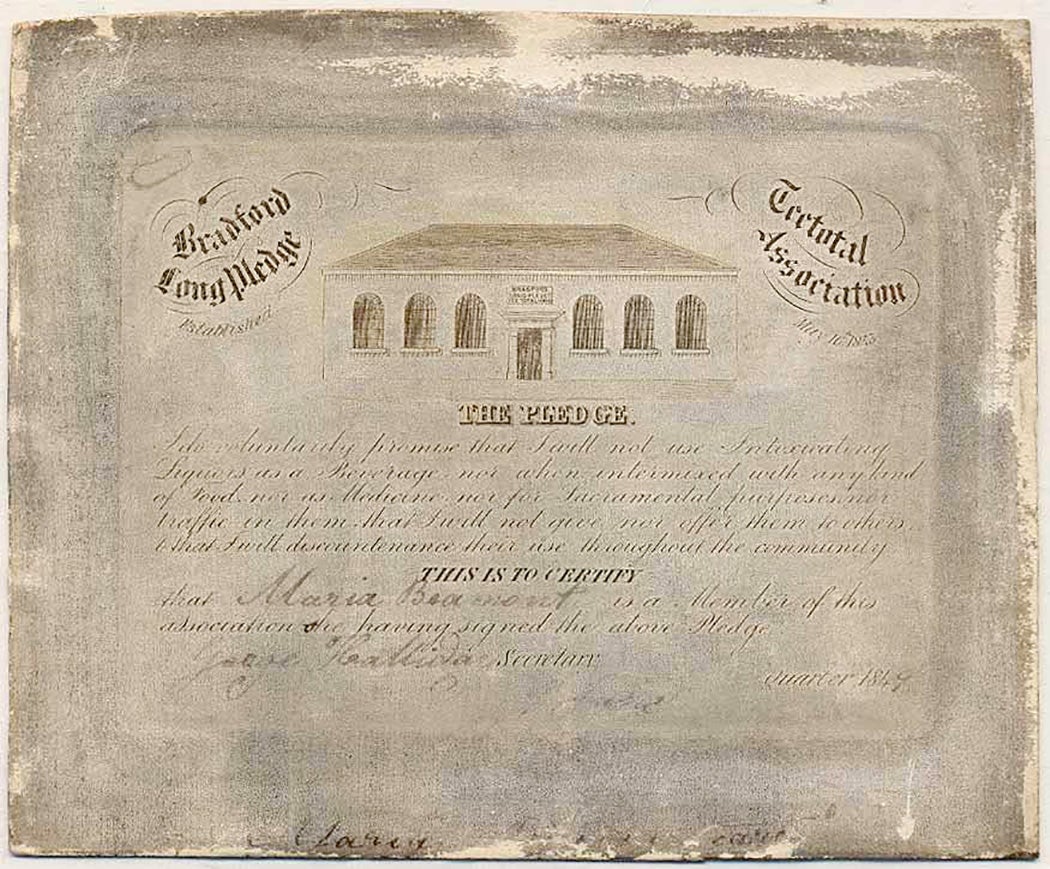 Bradford
Long Pledge
Established
Teetotal
Association
May 16th
BRADFORD
LONG PLEDGE
THE PLEDGE.
I do voluntarily promise that I will not use Intoxicating
Liquors as a Beverage, nor when intermixed with any kind
of Food, nor as Medicine, nor for Sacramental purposes, nor
traffic in them, that I will not give nor offer them to others,
& that I will discountenance their use throughout the community
THIS IS TO CERTIFY
that Maria Beamont is a Member of this
association she having signed the above Pledge
Hallida Secretary
Quarter 1849
Maria